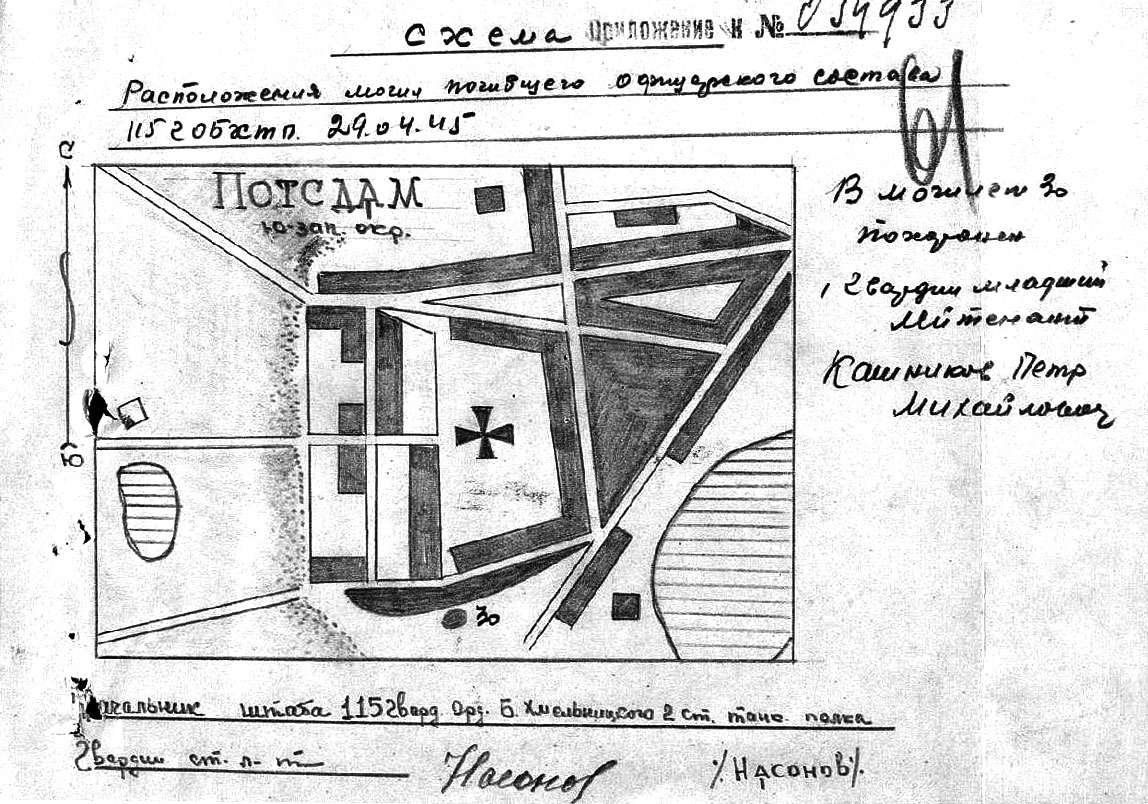 схема Приложение к № 034933
61
Расположения могил погибшего офицерского состава
115 г ОБХ тп. 29.04.45
С
Ю
ПОТСДАМ
ю-зап. окр.
В могиле 30
похоронен
1 гвардии младший
лейтенант
Кашников Петр
Михайлович
30
Начальник штаба 115 гвард. Орд. Б. Хмельницкого 2 ст. танк. полка
Гвардии ст. л-т
Насонов /НАСОНОВ/.